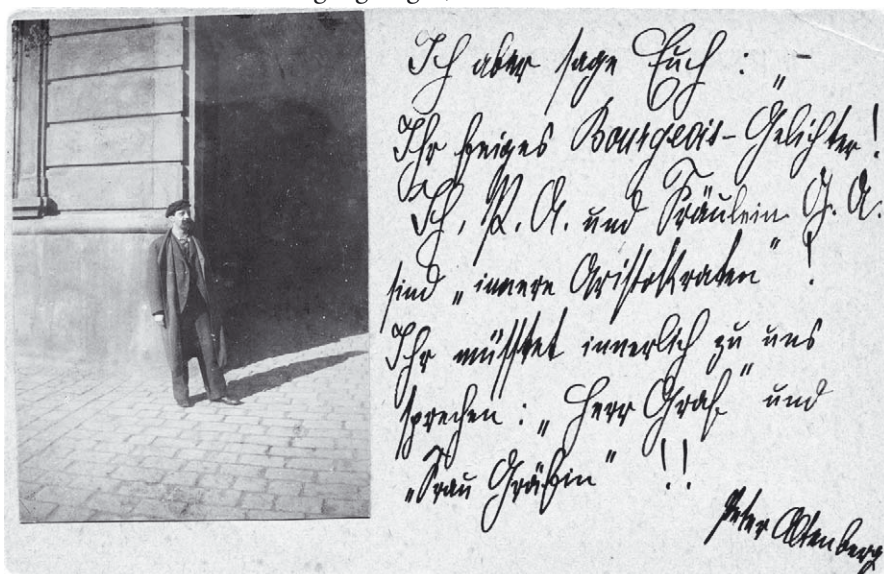 Ich aber sage Euch: „–
Ihr feiges Bourgeois-Gelichter!
Ich, P. A. und Fräulein G. A.
sind „innere Aristokraten“!
Ihr müsstet innerlich zu uns
sprechen: „Herr Graf“ und
„Frau Gräfin“!!
Peter Altenberg